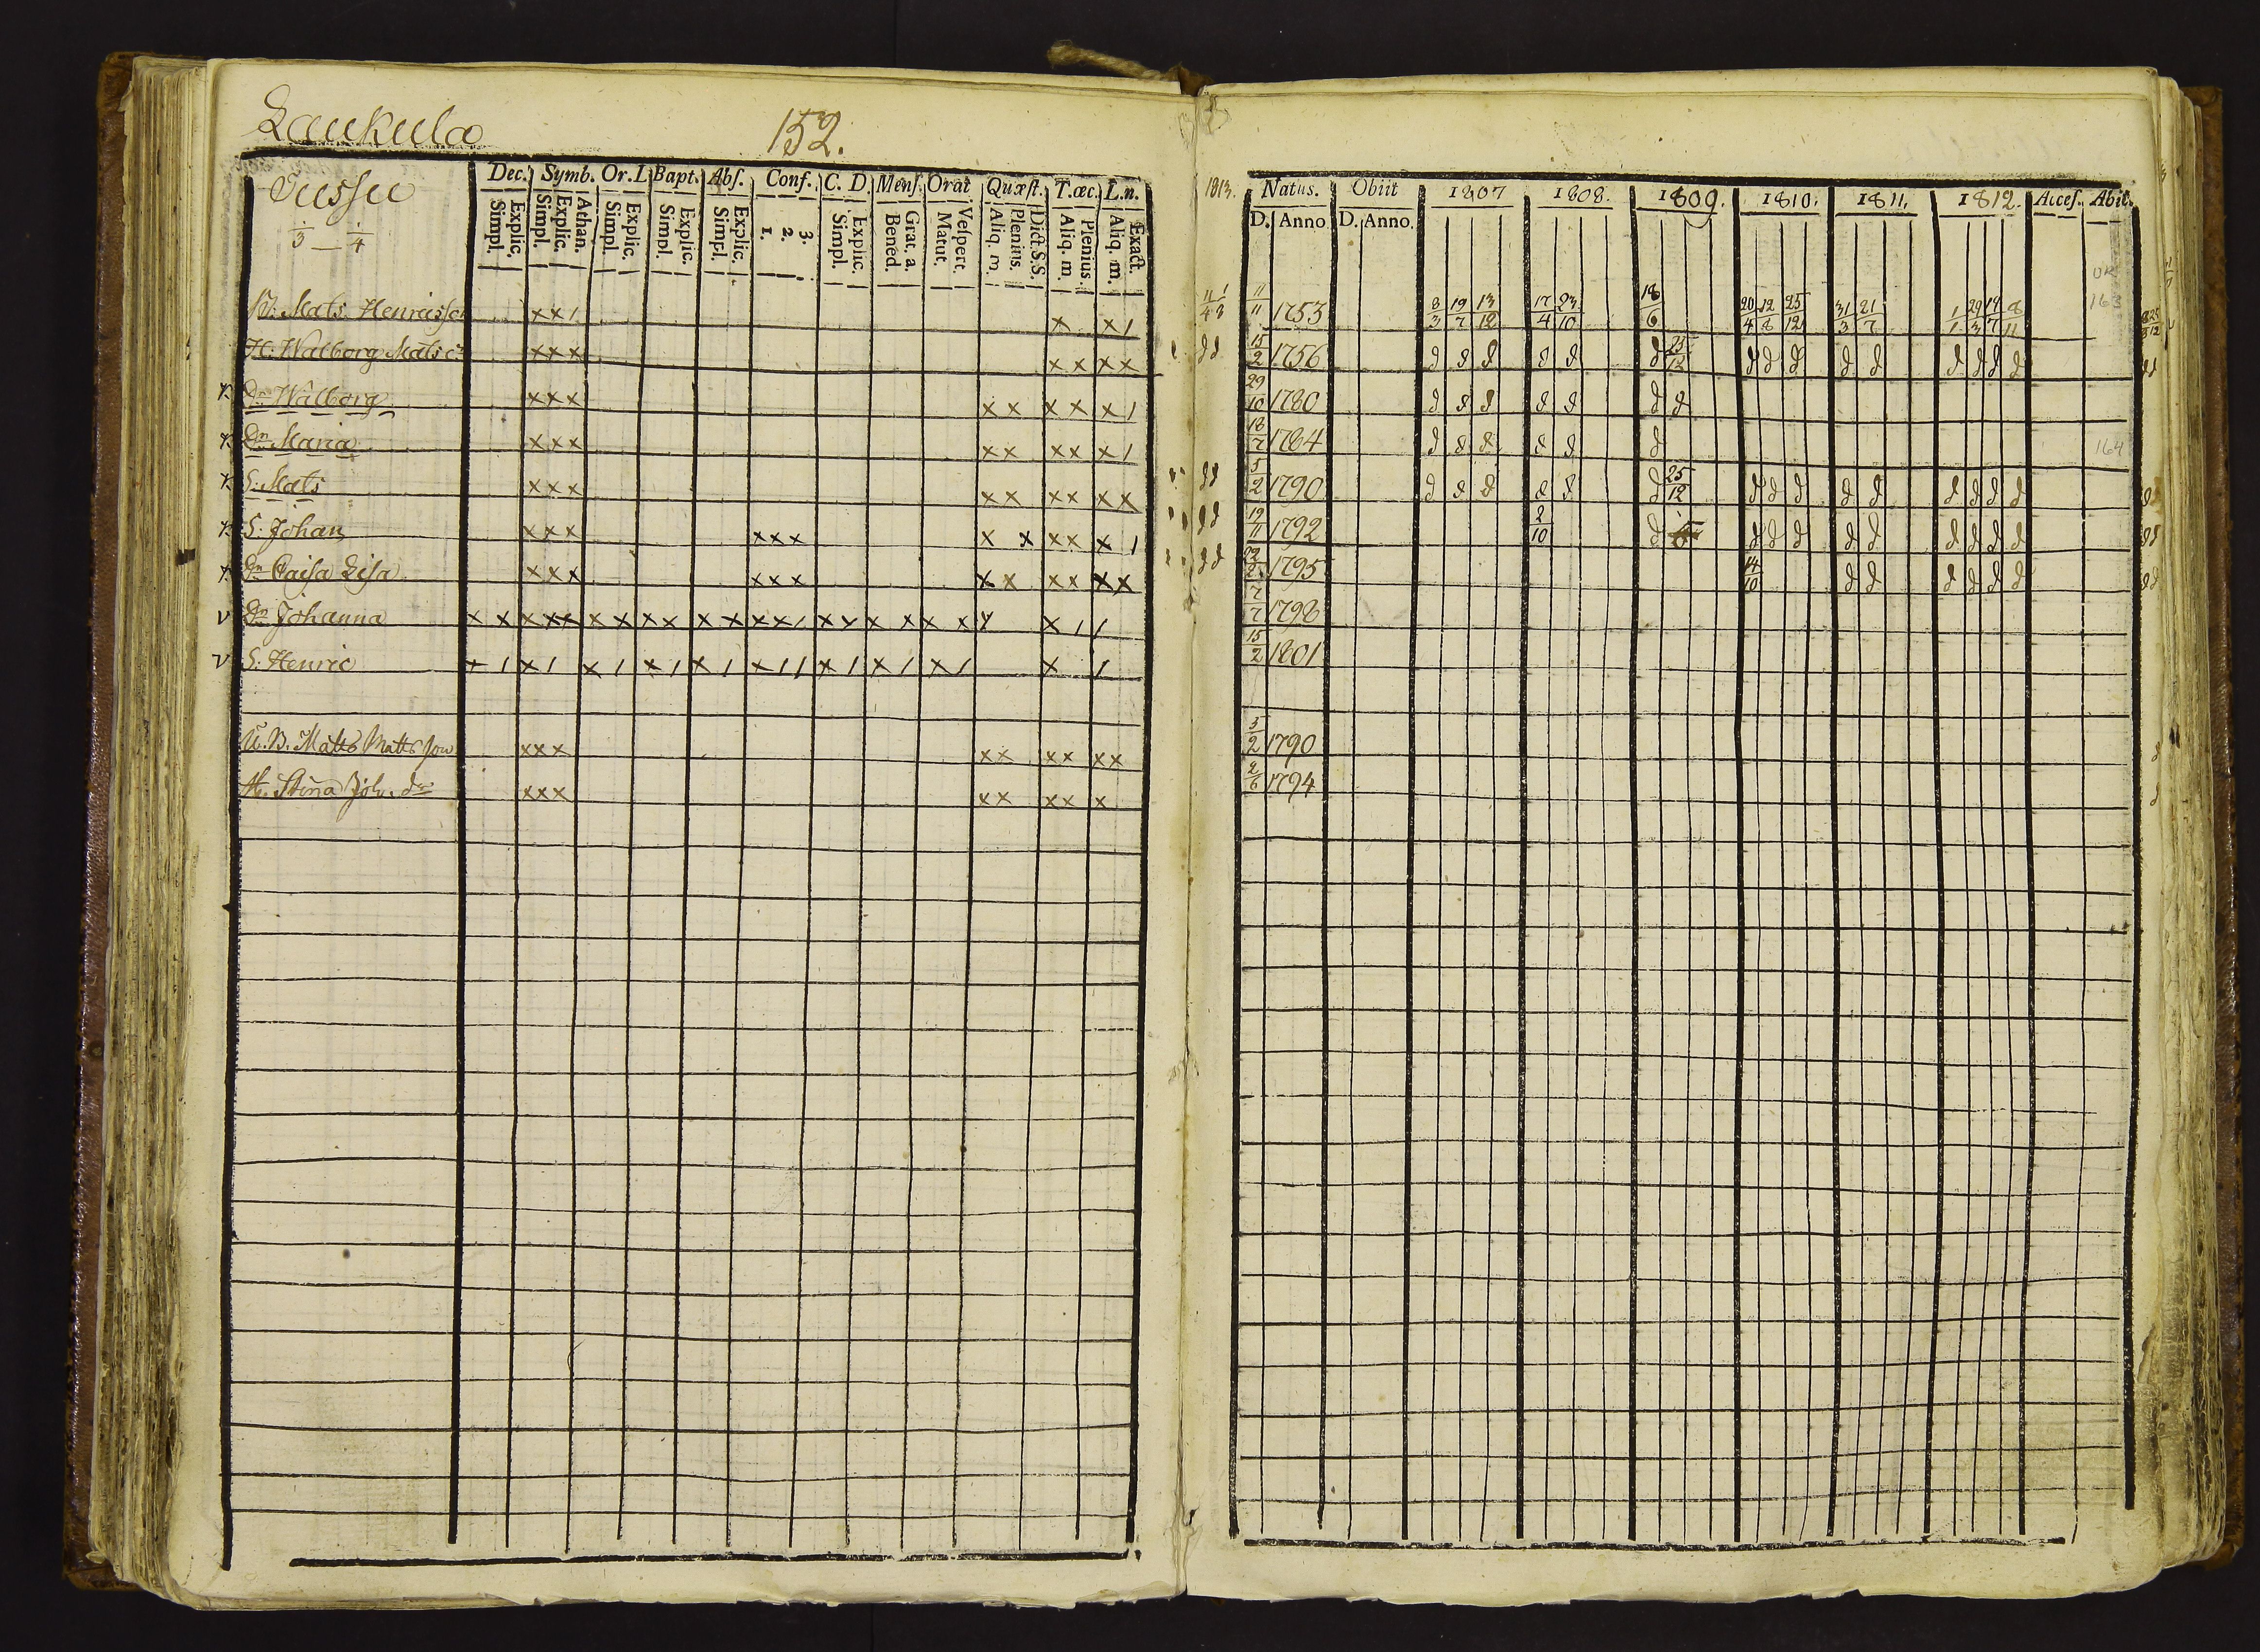 Laukula 152.
Jussu
1/3 — 1/4
Dec. Symb. Or. L Bapt. Abſ. Conf. C. D. Menſ. Orat Quæſt. T.æc. L.n.
Explic. Simpl. Athan. Explic. Simpl. Explic. Simpl. Explic. Simpl. Explic. Simpl. 3. 2. 1. Explic. Simpl. Grat. a. Bened. Veſpert. Matut. Dict. S.S. Plenius. Aliq. m. Plenius Aliq. m. Exact. Aliq. m.
B. Mats Henricsson x x 1 x x 1
H. Walborg Matsdr x x x x x x x
Dr Walborg x x x x x x x x 1
Dr Maria x x x x x x x x 1
S. Mats x x x x x x x x x
S. Johan x x x x x x x x x x x 1
Dr Caisa Lisa x x x x x x x x x x x x
v Dr Johanna x x x x x x x x x x x x x 1 x x x x x x x x 1 1
v S. Henric x 1 x 1 x 1 x 1 x 1 x 1 1 x 1 x 1 x 1 x 1
U. B. Matts Mattsson x x x x x x x x x
H. Stina Joh. dr x x x x x x x x
1813. Natus. Obiit 1807 1808. 1809. 1810. 1811. 1812. Acceſ. Abit.
D. Anno D. Anno.
11/11 1753 8/3 19/7 13/12 17/4 23/10 18/6 20/4 12/8 25/12 31/3 21/7 1/1 29/3 19/7 8/11 163
15/2 1756 d d d d d d 25/12 d d d d d d d d d
29/10 1780 d d d d d d d
18/7 1784 d d d d d d 164
5/2 1790 d d d d d d 25/12 d d d d d d d d d
19/11 1792 2/10 d d d d d d d d d d
1795 14/10 d d d d d d
7/7 1798
15/2 1801
5/2 1790
2/6 1794